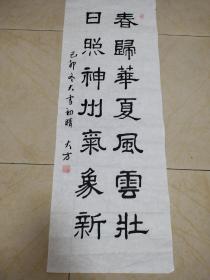 春歸華夏風雲壯
日照神州氣象新
己卯冬大雪初晴 大方